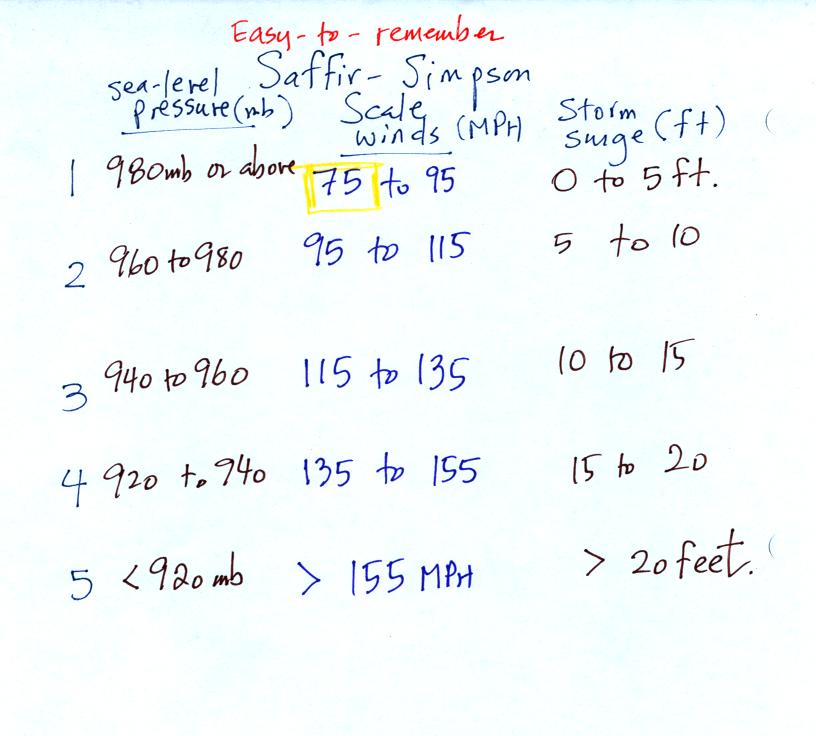 Easy-to-remember
Saffir-Simpson
sea-level pressure (mb) Scale winds (MPH) Storm surge (ft)
1 980mb or above 75 to 95 0 to 5 ft.
2 960 to 980 95 to 115 5 to 10
3 940 to 960 115 to 135 10 to 15
4 920 to 940 135 to 155 15 to 20
5 <920 mb > 155 MPH > 20 feet.